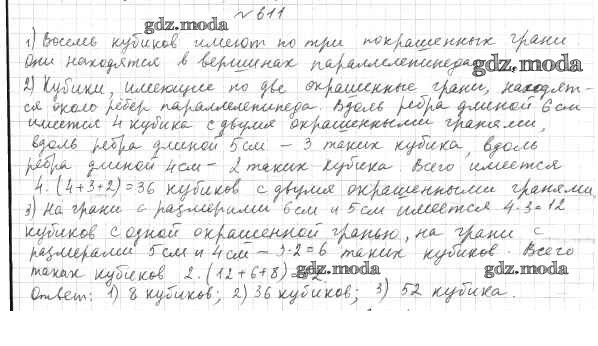 №611
gdz.moda
1) Восемь кубиков имеют по три покрашенных грани.
Они находятся в вершинах параллелепипеда
gdz.moda
2) Кубики, имеющие по две окрашенные грани, находят-
ся около рёбер параллелепипеда. Вдоль ребра длиной 6см
имеется 4 кубика с двумя окрашенными гранями,
вдоль ребра длиной 5см - 3 таких кубика, вдоль
ребра длиной 4см - 2 таких кубика. Всего имеется
4·(4+3+2)=36 кубиков с двумя окрашенными гранями
3) На грани с размерами 6см и 5см имеется 4·3=12
кубиков с одной окрашенной гранью, на грани с
размерами 5см и 4см - 3·2=6 таких кубиков. Всего
таких кубиков 2·(12+6+8)=
gdz.moda gdz.moda
Ответ: 1) 8 кубиков; 2) 36 кубиков; 3) 52 кубика.